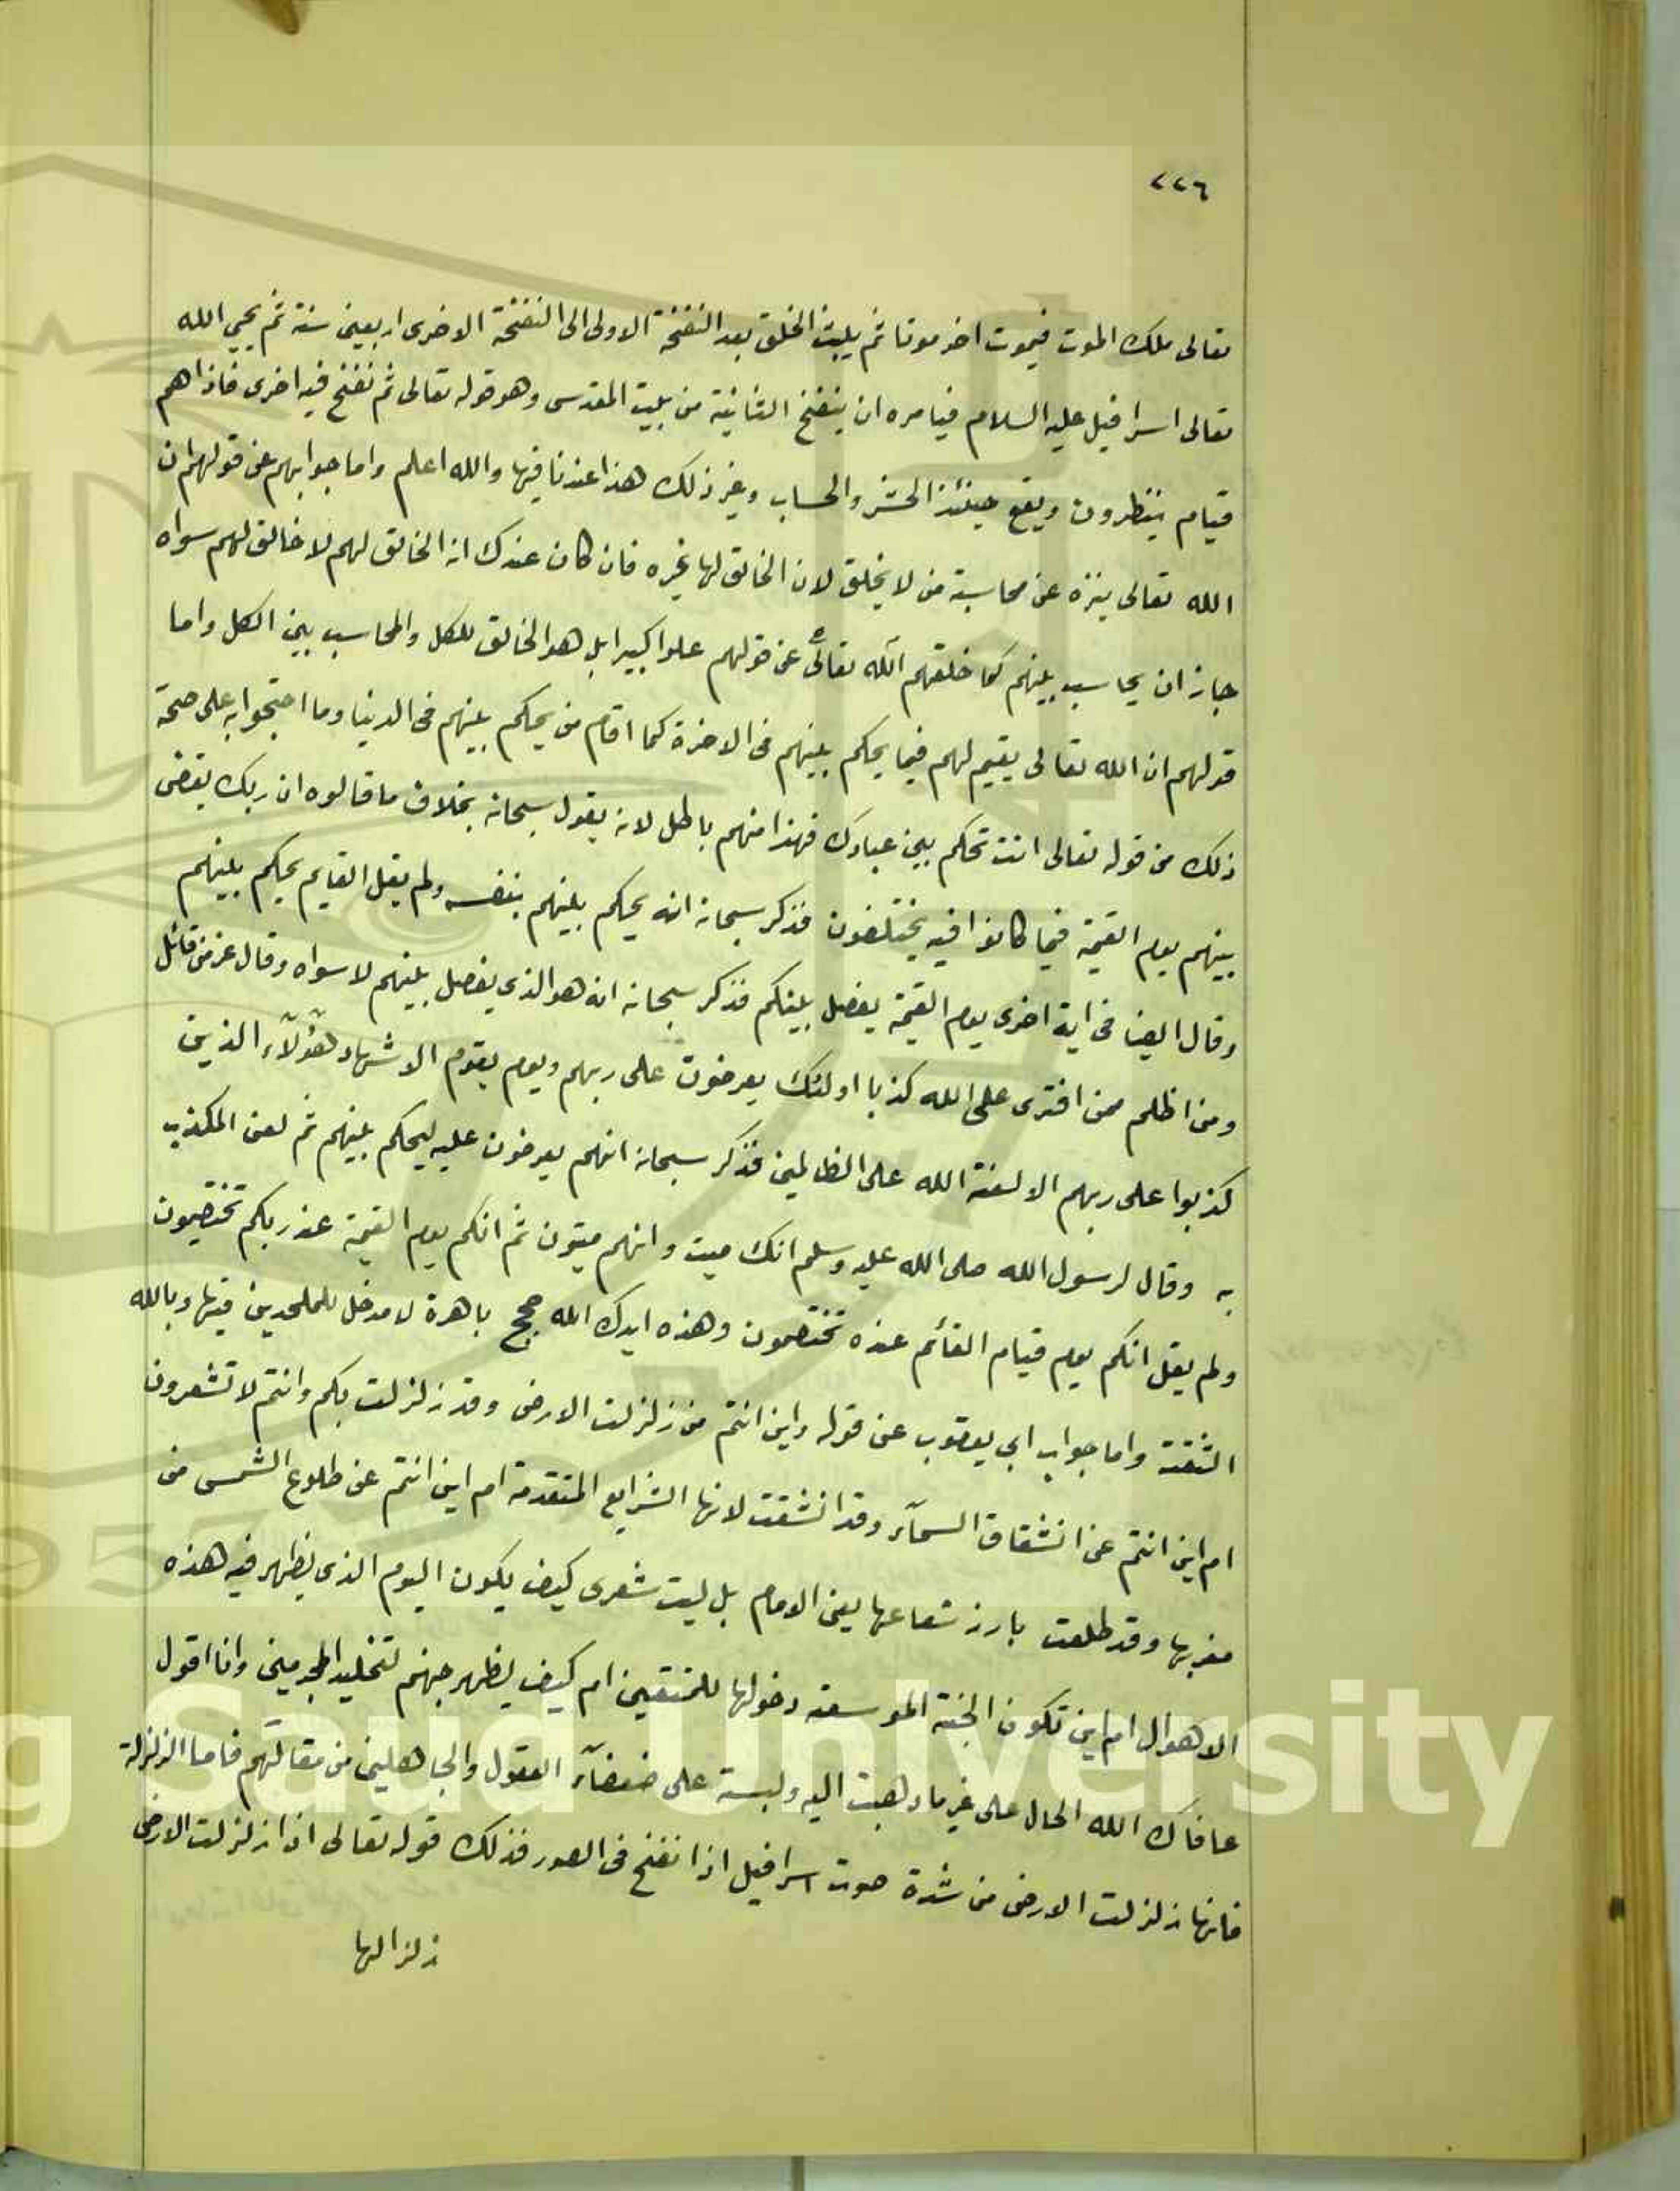 ٢٢٦
تعالى ملك الموت فيموت اخر موتا ثم يلبث الخلق بعد النفخة الاولى الى النفخة الاخرى اربعين سنة ثم يحيى الله
تعالى اسرافيل عليه السلام فيامره ان ينفخ الثانية من بيت المقدس وهو قوله تعالى ثم نفخ فيه اخرى فاذا هم
قيام ينظرون ويقع حينئذ الحشر والحساب وغير ذلك هذا عندنا فيها والله اعلم واما جوابهم عن قولهم ان
الله تعالى ينزه عن محاسبة من لا يخلق لان الخالق لها غيره فان كان عندك انه الخالق لهم لا خالق لهم سواه
جاز ان يحاسب بينهم كما خلقهم الله تعالى عن قولهم علوا كبيرا بل هو الخالق للكل والمحاسب بين الكل واما
قولهم ان الله تعالى يقيم لهم فيما يحكم بينهم فى الاخرة كما اقام من يحكم بينهم فى الدنيا وما احتجوا به على صحة
ذلك من قوله تعالى انت تحكم بين عبادك فهذا منهم باطل لانه يقول سبحانه بخلاف ما قالوه ان ربك يقضى
بينهم يوم القيمة فيما كانوا فيه يختلفون فذكر سبحانه انه يحكم بينهم بنفسه ولم يقل القايم يحكم بينهم
وقال ايضا فى اية اخرى يوم القيمة يفصل بينكم فذكر سبحانه انه هو الذى يفصل بينهم لا سواه وقال عز من قائل
ومن اظلم ممن افترى على الله كذبا اولئك يعرضون على ربهم ويوم يقوم الاشهاد هؤلآء الذين
كذبوا على ربهم الا لعنة الله على الظالمين فذكر سبحانه انهم يعرضون عليه ليحكم بينهم ثم لعن المكذب
به وقال لرسول الله صلى الله عليه وسلم انك ميت وانهم ميتون ثم انكم يوم القيمة عند ربكم تختصمون
ولم يقل انكم يوم قيام القائم عنده تختصمون وهذه ايدك الله حجج باهرة لا مدخل للملحدين فيها وبالله
الثقة واما جواب ابى يعقوب عن قوله واين انتم من زلزلت الارض وقد زلزلت بكم وانتم لا تشعرون
ام اين انتم عن انشقاق السمآء وقد انشقت لانها الشرايع المتقدمة ام اين انتم عن طلوع الشمس من
مغربها وقد طلعت بارز شعاعها يعنى الامام بل ليت شعرى كيف يكون اليوم الذى يظهر فيه هذه
الاهوال ام اين تكون الجنة الموسعة دخولها للمتقين ام كيف يظهر جهنم لتخليد المجرمين وانا اقول
عافاك الله الحال على غير ما ذهبت اليه ولبسة على ضعفآء العقول والجاهلين من مقالتهم فاما الزلزلة
فانها زلزلت الارض من شدة صوت اسرافيل اذا نفخ فى الصور فذلك قوله تعالى اذا زلزلت الارض
زلزالها
g Saud University
95